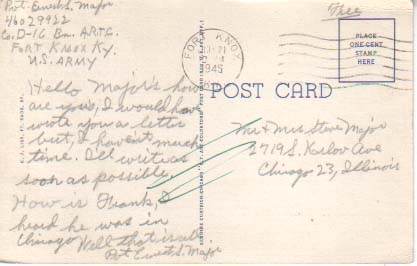 Pvt. Ernest L. Major
46029922
Co. D-16 Bn. A.R.T.C.
Fort Knox Ky.
U.S. ARMY
Free
FORT KNOX
1945
PLACE
ONE CENT
STAMP
HERE
POST CARD
Hello Major's how
are you's, I would have
wrote you a letter
but, I haven't much
time. I'll write as
soon as possible.
How is Frank, I
heard he was in
Chicago Well that is all
Pvt Ernest L. Major
Mr & Mrs Steve Major
2719 S. Karlov Ave
Chicago 23, Illinois